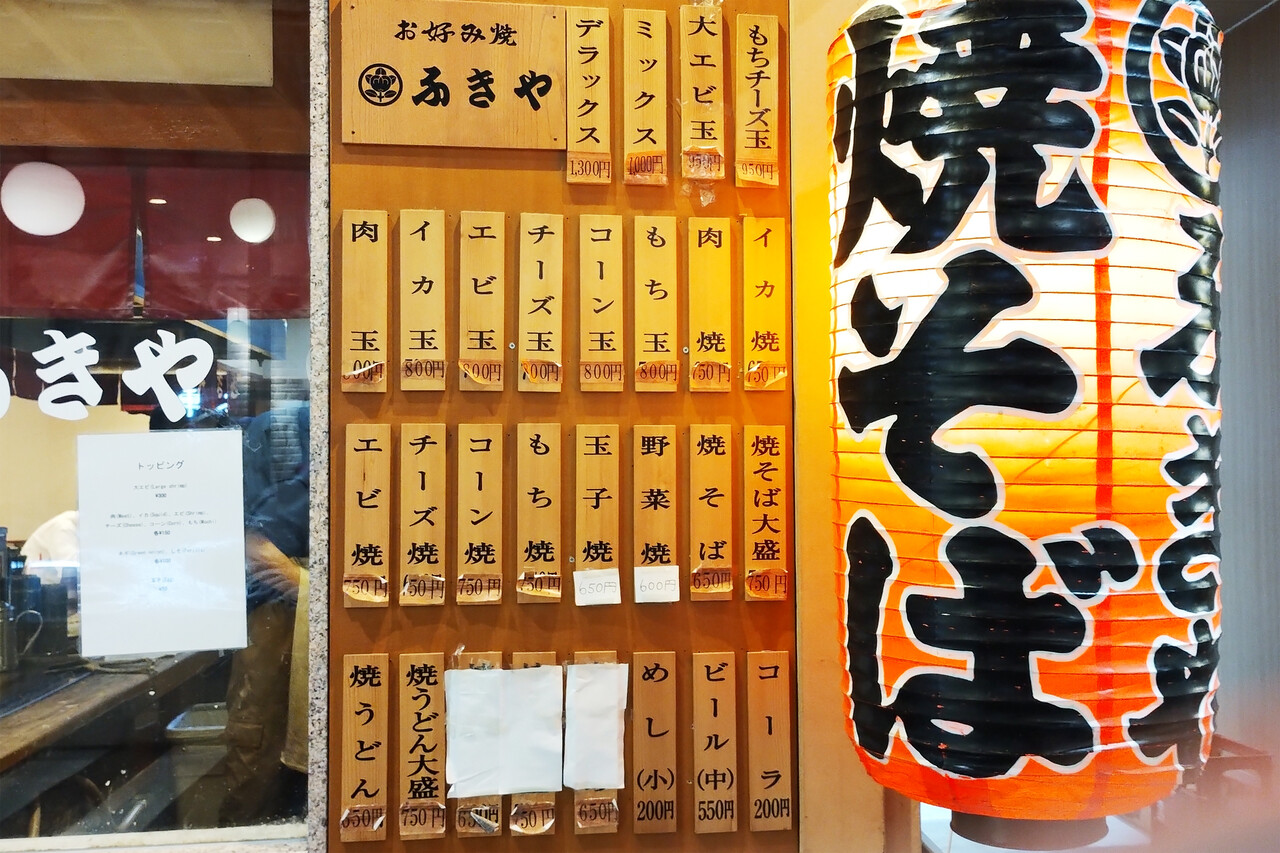 お好み焼
ふきや
デラックス
1,300円
ミックス
1,000円
大エビ玉
950円
もちチーズ玉
950円
肉玉
イカ玉
800円
エビ玉
800円
チーズ玉
800円
コーン玉
800円
もち玉
800円
肉焼
750円
イカ焼
750円
エビ焼
750円
チーズ焼
750円
コーン焼
750円
もち焼
750円
玉子焼
650円
野菜焼
600円
焼そば
650円
焼そば大盛
750円
焼うどん
650円
焼うどん大盛
750円
650円
めし(小)
200円
ビール(中)
550円
コーラ
200円
焼そば
きや
トッピング
大エビ(Large shrimp)
¥300